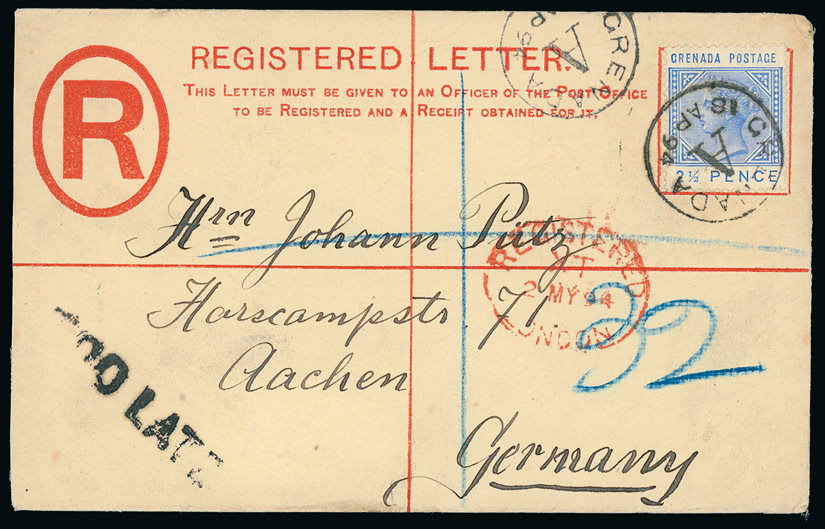 R
REGISTERED LETTER.
THIS LETTER MUST BE GIVEN TO AN OFFICER OF THE POST OFFICE
TO BE REGISTERED AND A RECEIPT OBTAINED FOR IT.
GRENADA
A
AP 94
GRENADA POSTAGE
2½ PENCE
GRENADA
A
18 AP 94
Hrn Johann Pütz
Horscampstr. 71.
Aachen
Germany
REGISTERED
2 MY 94
LONDON
32
TOO LATE